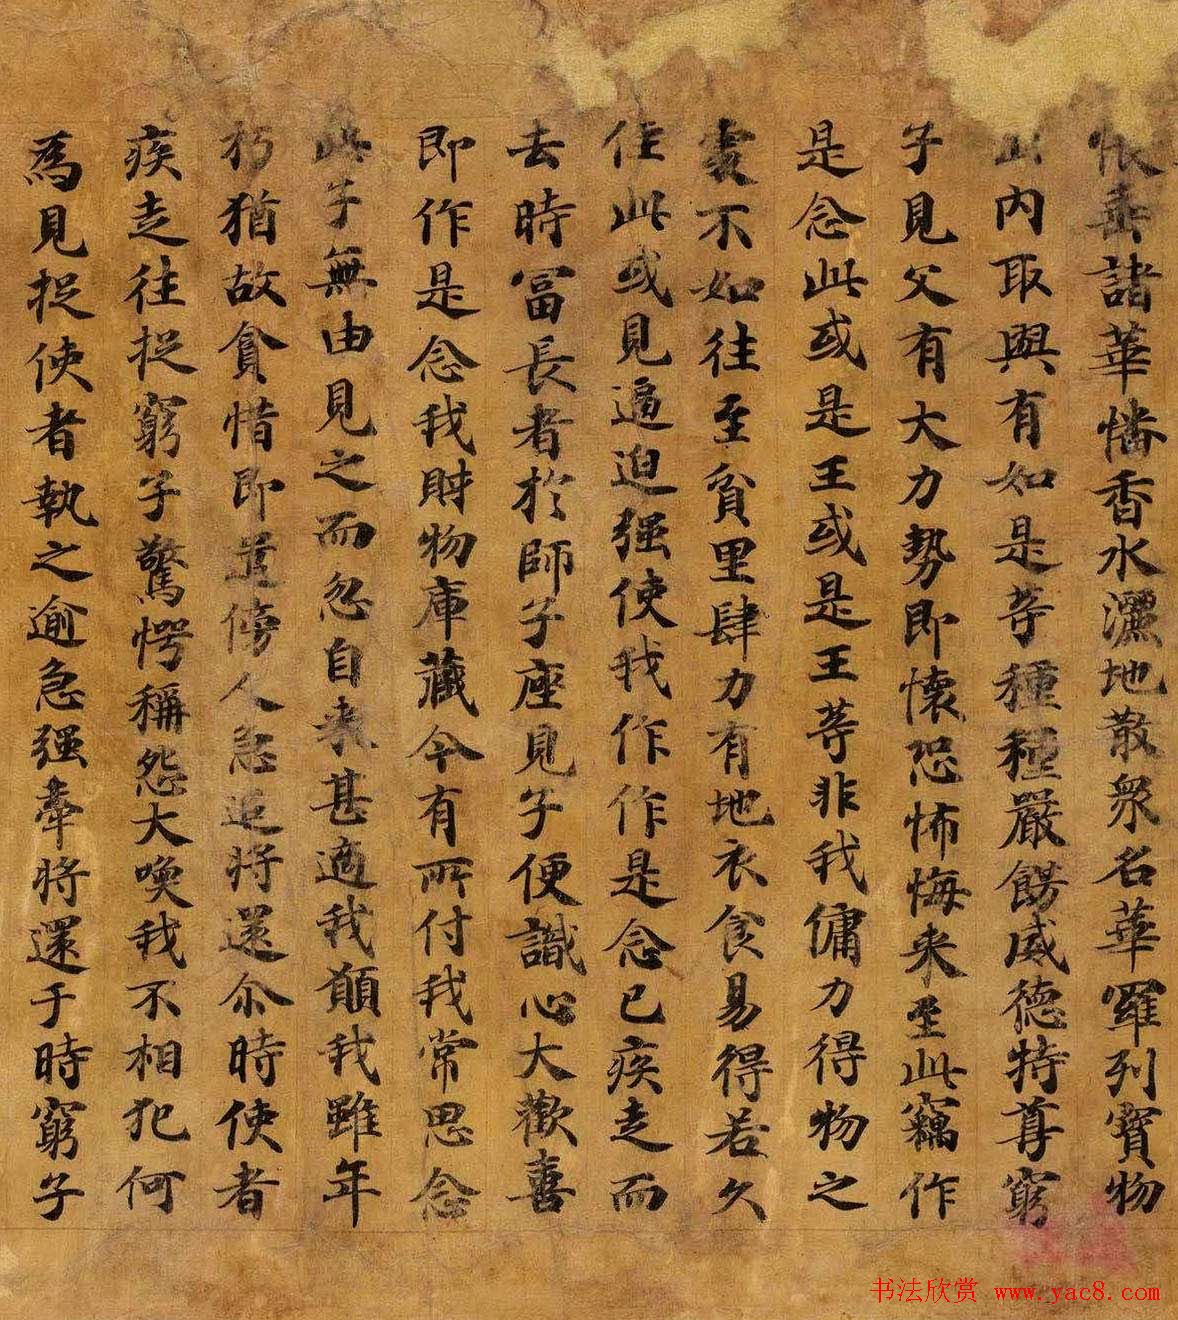 帳垂諸華幡香水灑地散衆名華羅列寶物
出內取與有如是等種種嚴飾威德特尊窮
子見父有大力勢即懷恐怖悔来至此竊作
是念此或是王或是王等非我傭力得物之
處不如往至貧里肆力有地衣食易得若久
住此或見逼迫强使我作作是念已疾走而
去時冨長者於師子座見子便識心大歡喜
即作是念我財物庫藏今有所付我常思念
此子無由見之而忽自来甚適我願我雖年
朽猶故貪惜即遣傍人急追將還尒時使者
疾走往捉窮子驚愕稱怨大喚我不相犯何
為見捉使者執之逾急强牽將還于時窮子
书法欣赏 www.yac8.com